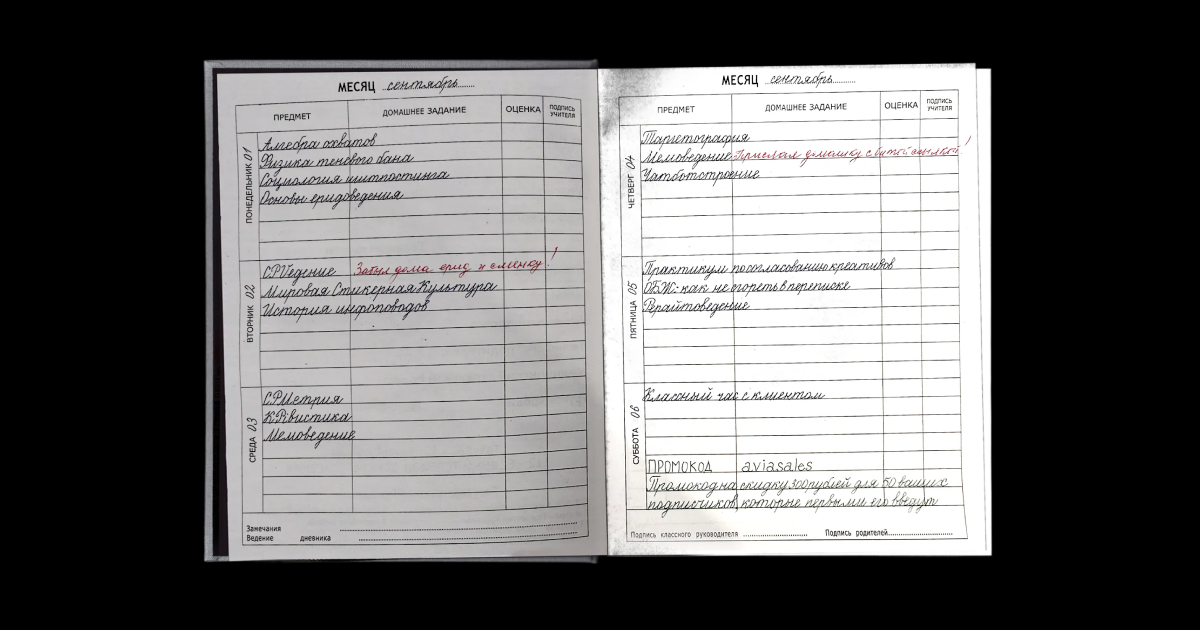 МЕСЯЦ сентябрь
ПРЕДМЕТ ДОМАШНЕЕ ЗАДАНИЕ ОЦЕНКА ПОДПИСЬ УЧИТЕЛЯ
ПОНЕДЕЛЬНИК 01
Алгебра охватов
Физика теневого бана
Социология шитпостинга
Основы еридоведения
ВТОРНИК 02
CPVедение Забыл дома ерид и сменку!
Мировая Стикерная Культура
История инфоповодов
СРЕДА 03
CPMетрия
KPIвистика
Мемоведение
Замечания
Ведение дневника
МЕСЯЦ сентябрь
ПРЕДМЕТ ДОМАШНЕЕ ЗАДАНИЕ ОЦЕНКА ПОДПИСЬ УЧИТЕЛЯ
ЧЕТВЕРГ 04
Таргетография
Мемоведение Прислал домашку с битой ссылкой!
Чатботостроение
ПЯТНИЦА 05
Практикум по согласованию креативов
ОБЖ: как не сгореть в переписке
Рерайтоведение
СУББОТА 06
Классный час с клиентом
ПРОМОКОД aviasales
Промокод на скидку 300 рублей для 50 ваших
подписчиков, которые первыми его введут
Подпись классного руководителя Подпись родителей